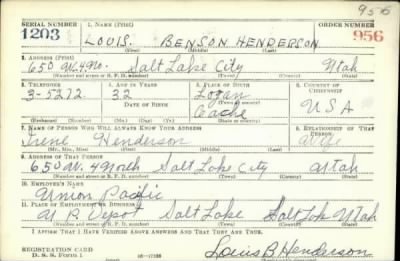 956
SERIAL NUMBER 1. NAME (Print) ORDER NUMBER
1203 LOUIS. BENSON HENDERSON 956
(First) (Middle) (Last)
2. ADDRESS (Print)
650 W. 4 No. Salt Lake City Utah
(Number and street or R. F. D. number) (Town) (County) (State)
3. TELEPHONE 4. AGE IN YEARS 5. PLACE OF BIRTH 6. COUNTRY OF CITIZENSHIP
3-5272 32 Logan
DATE OF BIRTH Cache USA
(Exchange) (Number) (Mo.) (Day) (Yr.) (State or country)
7. NAME OF PERSON WHO WILL ALWAYS KNOW YOUR ADDRESS 8. RELATIONSHIP OF THAT PERSON
Irene Henderson Wife
(Mr., Mrs., Miss) (First) (Middle) (Last)
9. ADDRESS OF THAT PERSON
650 W. 4 North Salt Lake City Utah
(Number and street or R. F. D. number) (Town) (County) (State)
10. EMPLOYER'S NAME
Union Pacific
11. PLACE OF EMPLOYMENT OR BUSINESS
U.P. Depot Salt Lake Salt Lake Utah
(Number and street or R. F. D. number) (Town) (County) (State)
I AFFIRM THAT I HAVE VERIFIED ABOVE ANSWERS AND THAT THEY ARE TRUE.
REGISTRATION CARD
D. S. S. FORM 1 Louis B Henderson
(Registrant's signature)